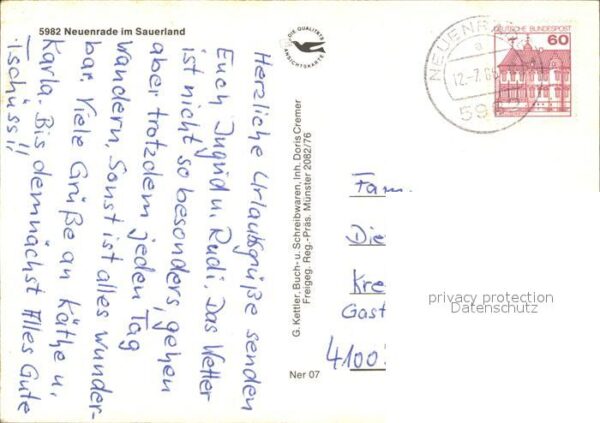 5982 Neuenrade im Sauerland
DIE QUALITÄTS
ANSICHTSKARTE
Herzliche Urlaubsgrüße senden
Euch Ingrid u. Rudi. Das Wetter
ist nicht so besonders, gehen
aber trotzdem jeden Tag
wandern, Sonst ist alles wunder-
bar. Viele Grüße an Käthe u.
Karla. Bis demnächst Alles Gute
Tschüss!!
G. Kettler, Buch- u. Schreibwaren, Inh. Doris Cremer
Freigeg. Reg.-Präs. Münster 2082/76
Ner 07
NEUENRA
a
12.-7.8
59
DEUTSCHE BUNDESPOST
60
Fam.
Die
Kre
Gast
4100
privacy protection
Datenschutz